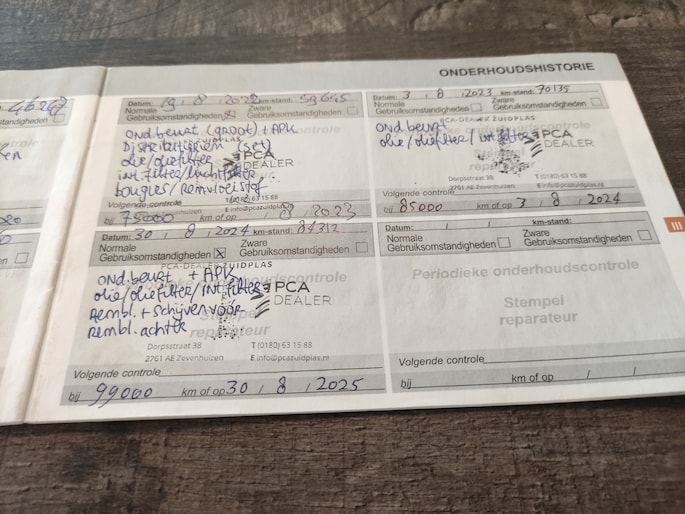 ONDERHOUDSHISTORIE
Datum: 19 / 8 / 2022 km-stand: 59645
Normale Gebruiksomstandigheden Zware Gebruiksomstandigheden
OND. beurt (groot) + APK
Distributieriem (set)
olie/oliefilter
int. filter/luchtfilter
bougies/remvloeistof
PCA DEALER
T (0180) 63 15 88
E info@pcazuidplas.nl
Volgende controle
bij 75000 km of op 8 / 2023
Datum: 3 / 8 / 2023 km-stand: 70135
Normale Gebruiksomstandigheden Zware Gebruiksomstandigheden
PCA-DEALER ZUIDPLAS
OND. beurt
olie/oliefilter/int. filter
PCA DEALER
Dorpsstraat 38 T (0180) 63 15 88
2761 AE Zevenhuizen E info@pcazuidplas.nl
Volgende controle
bij 85000 km of op 3 / 8 / 2024
Datum: 30 / 8 / 2024 km-stand: 84312
Normale Gebruiksomstandigheden Zware Gebruiksomstandigheden
PCA-DEALER ZUIDPLAS
OND. beurt + APK
olie/oliefilter/int. filter
Rembl. + schijven voor
rembl. achter
PCA DEALER
Dorpsstraat 38 T (0180) 63 15 88
2761 AE Zevenhuizen E info@pcazuidplas.nl
Volgende controle
bij 99000 km of op 30 / 8 / 2025
Datum: / / km-stand:
Normale Gebruiksomstandigheden Zware Gebruiksomstandigheden
Periodieke onderhoudscontrole
Stempel
reparateur
Volgende controle
bij km of op / /
III